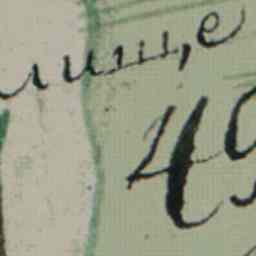 лище
49